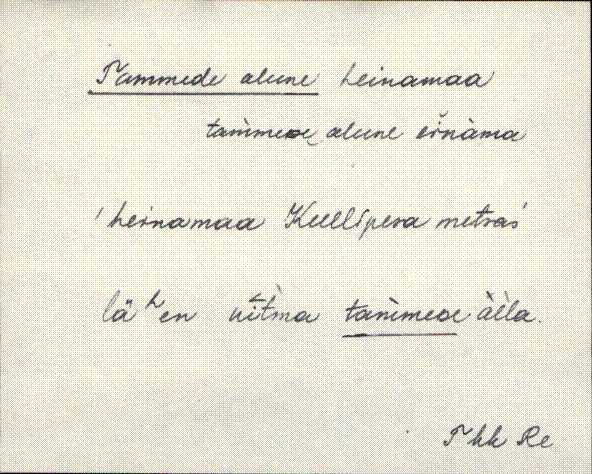 Tammede alune heinamaa
tam̀meᴅe alune ěrnàma
'heinamaa Kullipesa metsas'
läʰen nìtma tam̀meᴅe àlla.
Thk Re